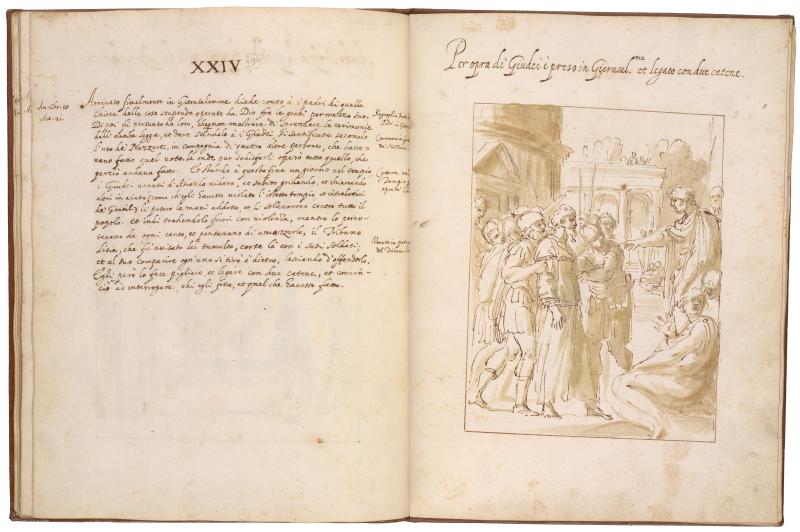 XXIV
An. Chr. 58
Act. 21.
Arrivato finalmente in Gierusalemme diede conto à i padri di quella
chiesa delle cose stupende operate da Dio fra le genti per mezzo suo.
Di poi fù persuaso da loro, che per mostrare di osservare le cerimonie
dell'antica legge, et dere à i Giudei si santificasse secondo
l'uso de' Nazarei, in compagnia di quattro altre persone, che have-
vano fatto quel voto, la onde per sodisfarli operò tutto quello, che
perciò andava fatto. Et stando à questo fine un giorno nel tempio
i Giudei venuti d'Asia lo videro, et subito gridando, et chiamando
altri in aiuto (come ch'egli havesse violato l' tempio et introdottovi
de' Gentili) li posero le mani addosso, et li sollevorono contro tutto il
popolo. Et indi trahendolo fuori con violenza, mentre lo perco-
tevano da ogni canto, et pensavano di amazzarlo, il Tribuno
Lisia, che fù avisato del tumulto, corse là con i suoi soldati,
et al suo comparire ogni uno si tirò à dietro, lasciando d'offenderlo.
Egli però lo fece pigliare, et legare con due catene, et comin-
ciò ad interrogare, chi egli fosse, et quel che havesse fatto.
Per opra di Giudei è preso in Gierusal.me et legato con due catene.